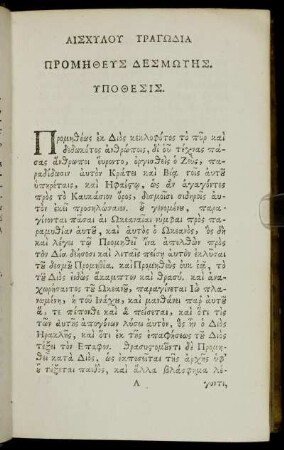 ΑΙΣΧΥΛΟΥ ΤΡΑΓΩΔΙΑ
ΠΡΟΜΗΘΕΥΣ ΔΕΣΜΩΤΗΣ.
ΥΠΟΘΕΣΙΣ.
Προμηθέως ἐκ Διὸς κεκλοφότος τὸ πῦρ καὶ
δεδωκότος ἀνθρώποις, δι' οὗ τέχνας πά-
σας ἄνθρωποι εὕροντο, ὀργισθεὶς ὁ Ζεὺς, πα-
ραδίδωσιν αὐτὸν Κράτει καὶ Βίᾳ τοῖς αὐτοῦ
ὑπηρέταις, καὶ Ἡφαίστῳ, ὡς ἂν ἀγαγόντες
πρὸς τὸ Καυκάσιον ὄρος, δεσμοῖς σιδηροῖς αὐ-
τὸν ἐκεῖ προσηλώσαιεν. οὗ γενομένου, παρα-
γίνονται πᾶσαι αἱ Ὠκεαναῖαι νύμφαι πρὸς πα-
ραμυθίαν αὐτοῦ, καὶ αὐτὸς ὁ Ὠκεανὸς, ὃς δὴ
καὶ λέγει τῷ Προμηθεῖ ἵνα ἀπελθὼν πρὸς
τὸν Δία δεήσεσι καὶ λιταῖς πείσῃ αὐτὸν ἐκλῦσαι
τοῦ δεσμοῦ Προμηθέα, καὶ Προμηθεὺς οὐκ ἐᾷ, τὸ
τοῦ Διὸς εἰδὼς ἄκαμπτον καὶ θρασύ. καὶ ἀνα-
χωρήσαντος τοῦ Ὠκεανοῦ, παραγίνεται Ἰὼ πλα-
νωμένη, ἡ τοῦ Ἰνάχου, καὶ μανθάνει παρ' αὐτοῦ
ἅ τε πέπονθε καὶ ἃ πείσεται, καὶ ὅτι τὶς
τῶν αὐτῆς ἀπογόνων λύσει αὐτὸν, ὃς ἦν ὁ Διὸς
Ἡρακλῆς, καὶ ὅτι ἐκ τῆς ἐπαφήσεως τοῦ Διὸς
τέξει τὸν Ἔπαφον. θρασυστομοῦντι δὲ Προμη-
θεῖ κατὰ Διὸς, ὡς ἐκπεσεῖται τῆς ἀρχῆς ὑφ'
οὗ τέξεται παιδὸς, καὶ ἄλλα βλάσφημα λέ-
Α γοντι,